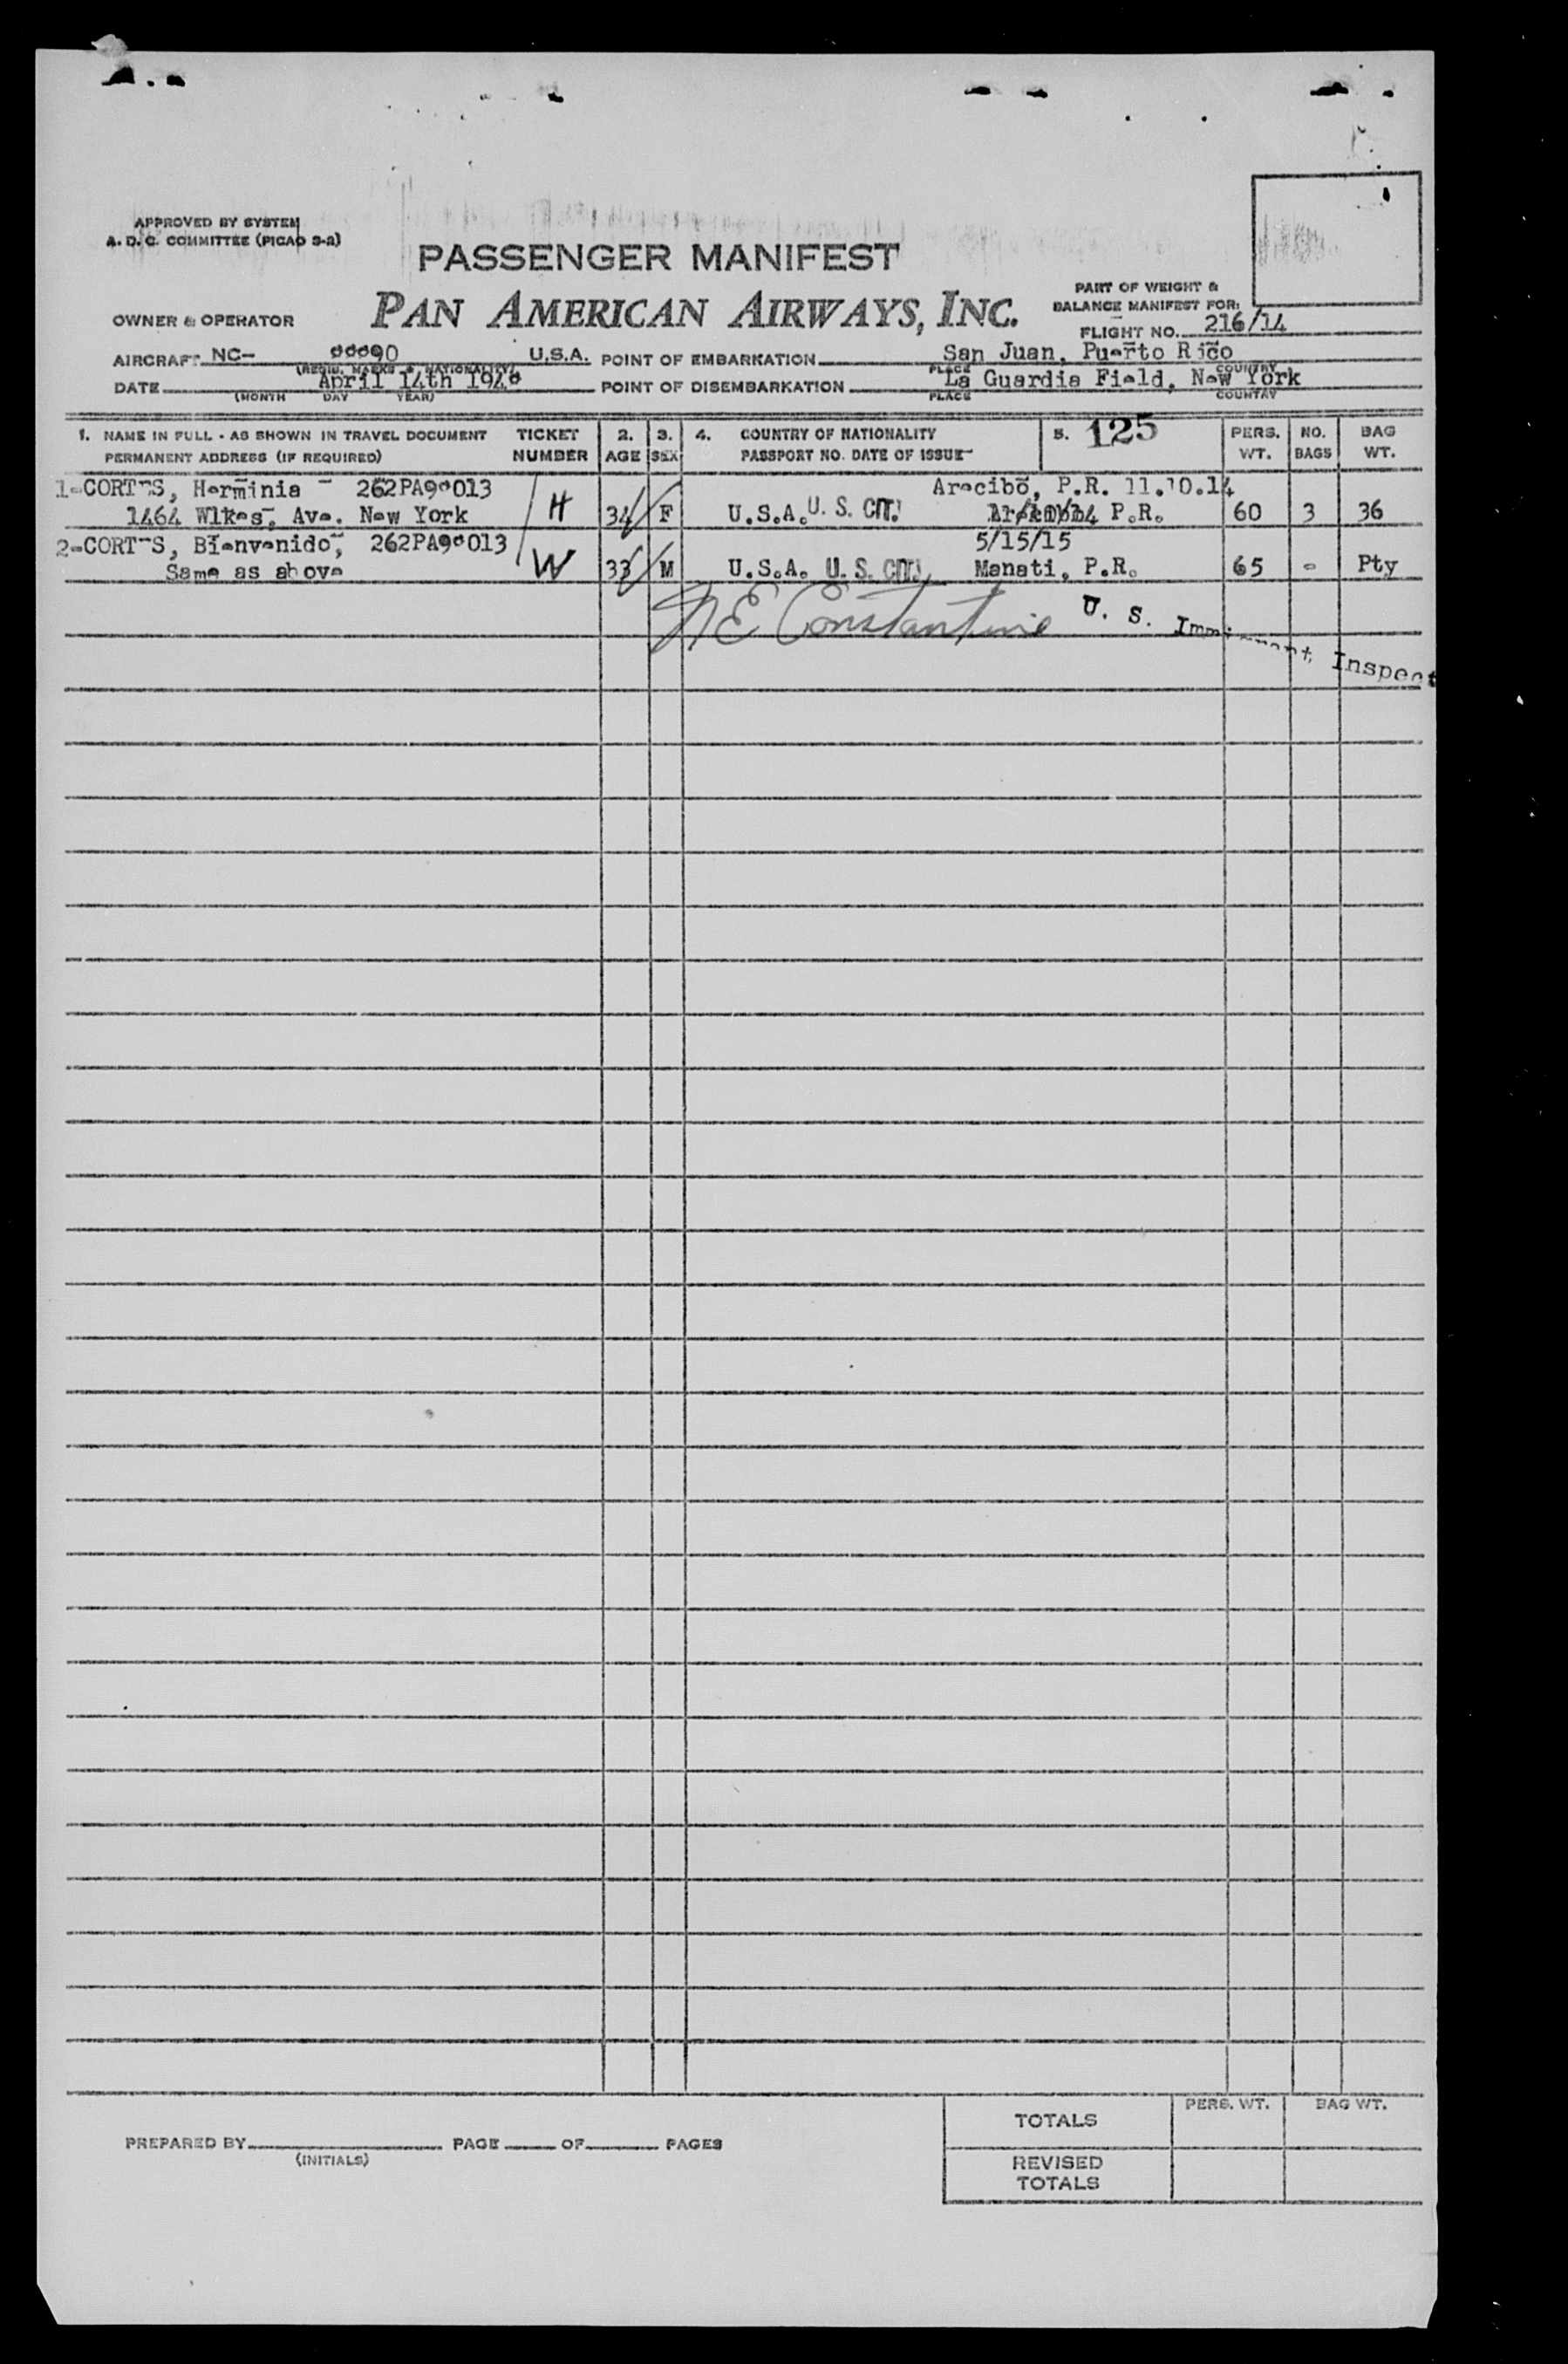 APPROVED BY SYSTEM
A. D. C. COMMITTEE (PICAO S-2)
PASSENGER MANIFEST
PAN AMERICAN AIRWAYS, INC.
OWNER & OPERATOR
PART OF WEIGHT &
BALANCE MANIFEST FOR:
FLIGHT NO. 216/14
AIRCRAFT NC- U.S.A. POINT OF EMBARKATION San Juan, Puerto Rico
(REGIS. MARKS & NATIONALITY) PLACE COUNTRY
DATE April 14th POINT OF DISEMBARKATION La Guardia Field, New York
(MONTH DAY YEAR) PLACE COUNTRY
1. NAME IN FULL - AS SHOWN IN TRAVEL DOCUMENT TICKET 2. 3. 4. COUNTRY OF NATIONALITY 5. 125 PERS. NO. BAG
PERMANENT ADDRESS (IF REQUIRED) NUMBER AGE SEX PASSPORT NO. DATE OF ISSUE WT. BAGS WT.
1-CORTES, Herminia - Arecibo, P.R. 11.10.14
1464 Ave. New York H 34 F U.S.A. U. S. CIT. P.R. 60 3 36
2-CORTES, Bienvenido, 5/15/15
Same as above W 33 M U.S.A. U. S. CIT. Manati, P.R. 65 - Pty
N E Constantine U. S. Immigrant Inspect
PREPARED BY PAGE OF PAGES
(INITIALS)
TOTALS PERS. WT. BAG WT.
REVISED
TOTALS